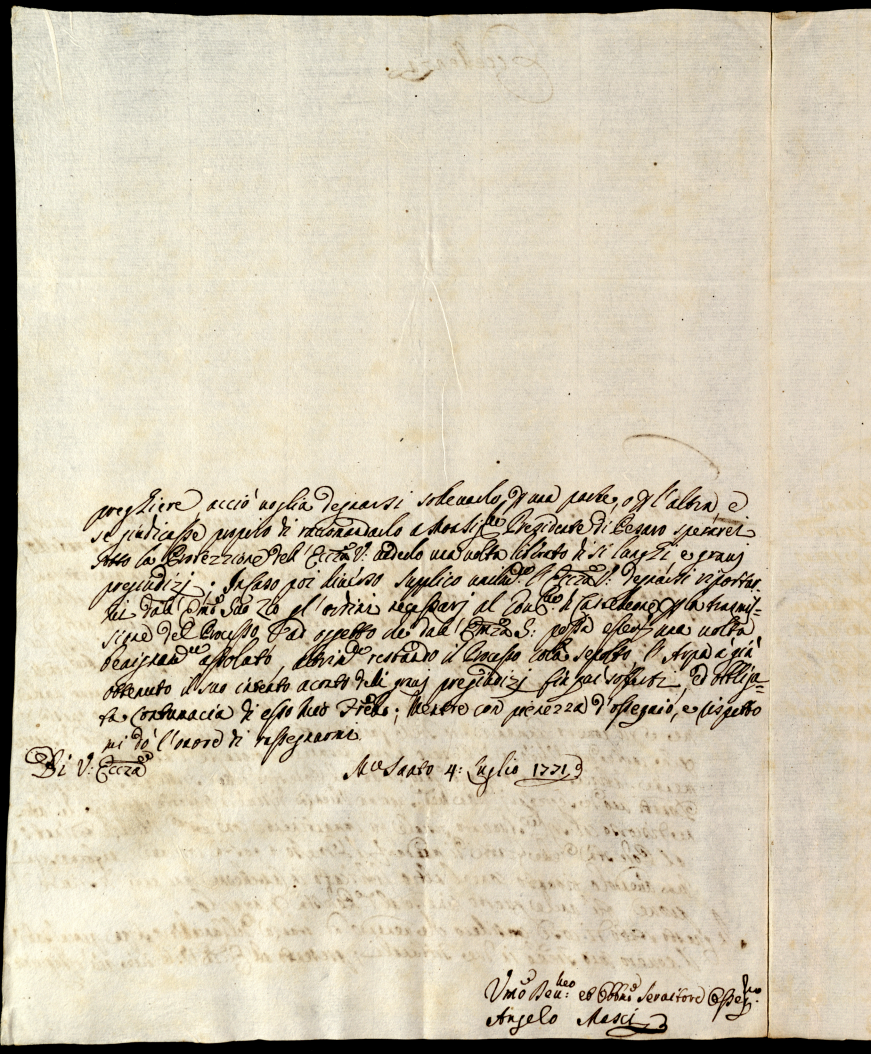 preghiere, acciò voglia degnarsi sollevarlo, d'una parte, o dell'altra e
se giudicasse proprio di racomandarlo a Monsig.re Presidente di Pesaro sperarei
sotto la Protezzione dell'Eccza V: vederlo una volta liberato da si lunghi e gravi
pregiudizj; In caso poi diverso supplico umilm.te l'Eccza V: degnarsi riportar
mi dall' gl'ordini necessarj al di per la trasmis=
sione del Processo, ad oggetto che dall'Emza S: possa essere una volta
benignam.te assoluto, restando il Processo colà
ottenuto il suo intento a conto delli gravi pregiudizj fin qui sofferti, ed obbliga=
ta contumacia di esso mio Frello; Mentre con pienezza d'ossequio, e rispetto
mi dò l'onore di rassegnarmi
Di V: Eccza
M.te Santo 4: Luglio 1771
Vmo Dev.mo: ed Obbmo Servitore Osseq.mo
Angelo Masci